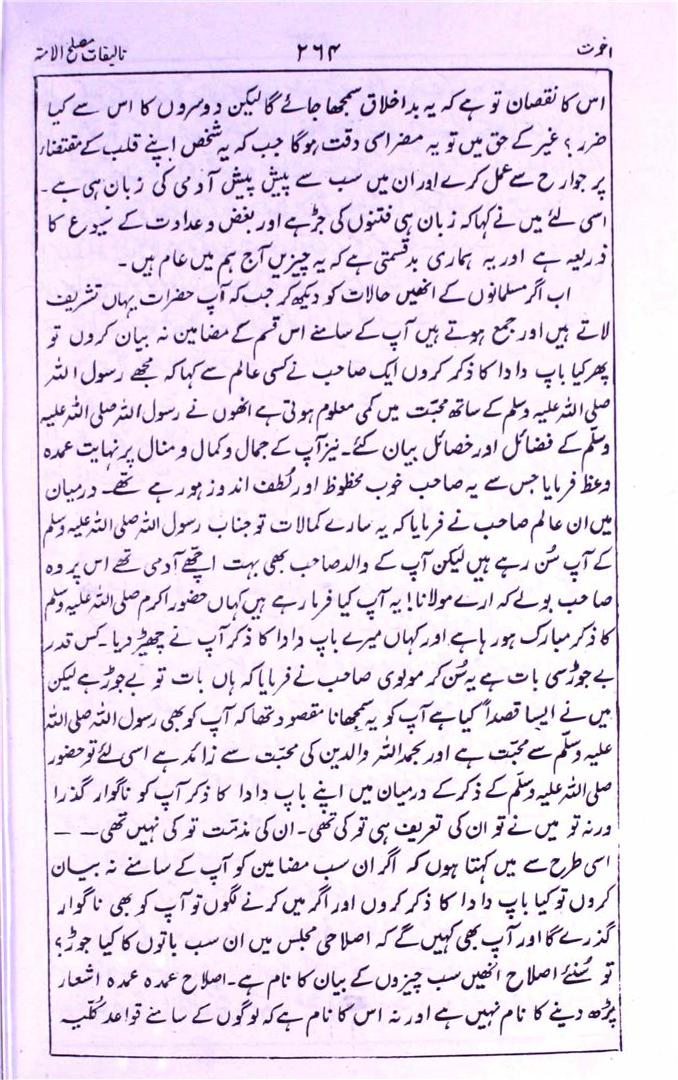 اخوت ۲۶۴ تالیفات مصلح الامۃ
اس کا نقصان تو ہے کہ یہ بداخلاق سمجھا جائے گا لیکن دوسروں کا اس سے کیا
ضرر؟ غیر کے حق میں تو یہ مضر اسی وقت ہوگا جب کہ یہ شخص اپنے قلب کے مقتضاء
پر جوارح سے عمل کرے اور ان میں سب سے پیش پیش آدمی کی زبان ہی ہے۔
اسی لئے میں نے کہا کہ زبان ہی فتنوں کی جڑ ہے اور بغض و عداوت کے شیوع کا
ذریعہ ہے اور یہ ہماری بدقسمتی ہے کہ یہ چیزیں آج ہم میں عام ہیں۔
اب اگر مسلمانوں کے انھیں حالات کو دیکھ کر جب کہ آپ حضرات یہاں تشریف
لاتے ہیں اور جمع ہوتے ہیں آپ کے سامنے اس قسم کے مضامین نہ بیان کروں تو
پھر کیا باپ دادا کا ذکر کروں ایک صاحب نے کسی عالم سے کہا کہ مجھے رسول اللہ
صلی اللہ علیہ وسلم کے ساتھ محبت میں کمی معلوم ہوتی ہے انھوں نے رسول اللہ صلی اللہ علیہ
وسلم کے فضائل اور خصائل بیان کئے۔ نیز آپ کے جمال و کمال و منال پر نہایت عمدہ
وعظ فرمایا جس سے یہ صاحب خوب محظوظ اور لُطف اندوز ہو رہے تھے۔ درمیان
میں ان عالم صاحب نے فرمایا کہ یہ سارے کمالات تو جناب رسول اللہ صلی اللہ علیہ وسلم
کے آپ سُن رہے ہیں لیکن آپ کے والد صاحب بھی بہت اچھے آدمی تھے اس پر وہ
صاحب بولے کہ ارے مولانا! یہ آپ کیا فرما رہے ہیں کہاں حضور اکرم صلی اللہ علیہ وسلم
کا ذکر مبارک ہو رہا ہے اور کہاں میرے باپ دادا کا ذکر آپ نے چھیڑ دیا۔ کس قدر
بے جوڑ سی بات ہے یہ سُن کر مولوی صاحب نے فرمایا کہ ہاں بات تو بے جوڑ ہے لیکن
میں نے ایسا قصداً کیا ہے آپ کو یہ سمجھانا مقصود تھا کہ آپ کو بھی رسول اللہ صلی اللہ
علیہ وسلم سے محبت ہے اور بحمد اللہ والدین کی محبت سے زائد ہے اسی لئے تو حضور
صلی اللہ علیہ وسلم کے ذکر کے درمیان میں اپنے باپ دادا کا ذکر آپ کو ناگوار گذرا
ورنہ تو میں نے تو ان کی تعریف ہی تو کی تھی۔ ان کی مذمت تو کی نہیں تھی ــ ــ
اسی طرح سے میں کہتا ہوں کہ اگر ان سب مضامین کو آپ کے سامنے نہ بیان
کروں تو کیا باپ دادا کا ذکر کروں اور اگر میں کرنے لگوں تو آپ کو بھی ناگوار
گذرے گا اور آپ بھی کہیں گے کہ اصلاحی مجلس میں ان سب باتوں کا کیا جوڑ؟
تو سُنئے اصلاح انھیں سب چیزوں کے بیان کا نام ہے۔ اصلاح عمدہ عمدہ اشعار
پڑھ دینے کا نام نہیں ہے اور نہ اس کا نام ہے کہ لوگوں کے سامنے قواعد کُلّیہ